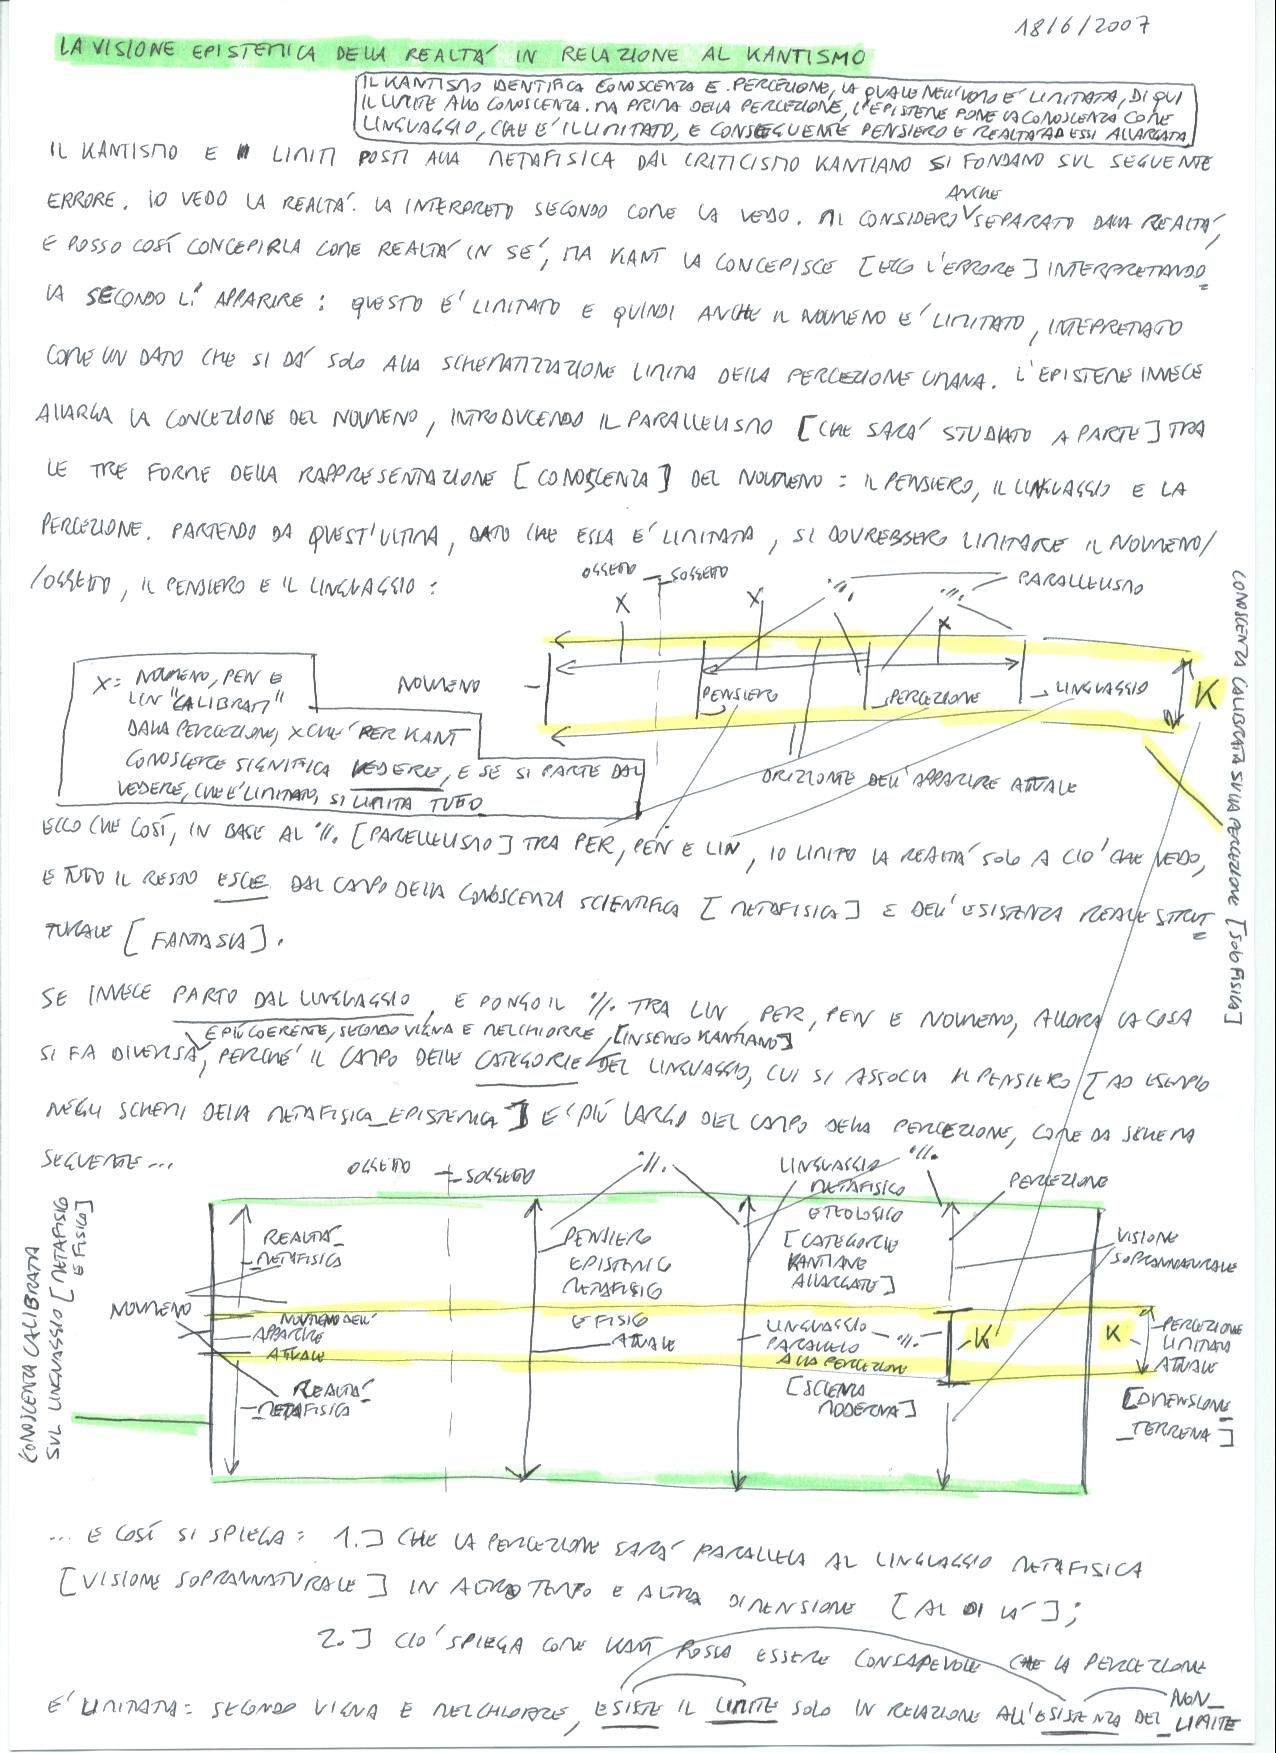 18/6/2007
LA VISIONE EPISTEMICA DELLA REALTA' IN RELAZIONE AL KANTISMO
IL KANTISMO IDENTIFICA CONOSCENZA E PERCEZIONE, LA QUALE NELL'UOMO E' LIMITATA, DI QUI
IL LIMITE ALLA CONOSCENZA. MA PRIMA DELLA PERCEZIONE, L'EPISTEME PONE LA CONOSCENZA COME
LINGUAGGIO, CHE E' ILLIMITATO, E CONSEGUENTE PENSIERO E REALTA' AD ESSI ALLARGATA
IL KANTISMO E LIMITI POSTI ALLA METAFISICA DAL CRITICISMO KANTIANO SI FONDANO SUL SEGUENTE
ERRORE. IO VEDO LA REALTA'. LA INTERPRETO SECONDO COME LA VEDO. MI CONSIDERO ANCHE SEPARATO DALLA REALTA',
E POSSO COSÍ CONCEPIRLA COME REALTA' IN SE', MA KANT LA CONCEPISCE [ECCO L'ERRORE] INTERPRETANDO=
LA SECONDO L'APPARIRE: QUESTO E' LIMITATO E QUINDI ANCHE IL NOUMENO E' LIMITATO, INTEPRETATO
COME UN DATO CHE SI DA' SOLO ALLA SCHEMATIZZAZIONE LIMITATA DELLA PERCEZIONE UMANA. L'EPISTEME INVECE
ALLARGA LA CONCEZIONE DEL NOUMENO, INTRODUCENDO IL PARALLELISMO [CHE SARA' STUDIATO A PARTE] TRA
LE TRE FORME DELLA RAPPRESENTAZIONE [CONOSCENZA] DEL NOUMENO: IL PENSIERO, IL LINGUAGGIO E LA
PERCEZIONE. PARTENDO DA QUEST'ULTIMA, DATO CHE ESSA E' LIMITATA, SI DOVREBBERO LIMITARE IL NOUMENO/
/OGGETTO, IL PENSIERO E IL LINGUAGGIO:
OGGETTO SOGGETTO
X X X
·//· ·//· PARALLELISMO
X = NOUMENO, PEN E
LIN "CALIBRATI"
DALLA PERCEZIONE, XCHE' PER KANT
CONOSCERE SIGNIFICA VEDERE, E SE SI PARTE DAL
VEDERE, CHE E' LIMITATO, SI LIMITA TUTTO
NOUMENO PENSIERO PERCEZIONE LINGUAGGIO K
ORIZZONTE DELL'APPARIRE ATTUALE
CONOSCENZA CALIBRATA SULLA PERCEZIONE [SOLO FISICA]
ECCO CHE COSÍ, IN BASE AL ·//· [PARELLELISMO] TRA PER, PEN E LIN, IO LIMITO LA REALTA' SOLO A CIO' CHE VEDO,
E TUTTO IL RESTO ESCE DAL CAMPO DELLA CONOSCENZA SCIENTIFICA [METAFISICA] E DELL'ESISTENZA REALE STRUT=
TURALE [FANTASIA].
SE INVECE PARTO DAL LINGUAGGIO, E PONGO IL ·//· TRA LIN, PER, PEN E NOUMENO, ALLORA LA COSA
E PIÚ COERENTE, SECONDO VIGNA E MELCHIORRE, [IN SENSO KANTIANO]
SI FA DIVERSA, PERCHE' IL CAMPO DELLE CATEGORIE DEL LINGUAGGIO, CUI SI ASSOCIA IL PENSIERO [AD ESEMPIO
NEGLI SCHEMI DELLA METAFISICA_EPISTEMICA] E' PIÚ LARGO DEL CAMPO DELLA PERCEZIONE, COME DA SCHEMA
SEGUENTE...
OGGETTO SOGGETTO ·//· ·//·
LINGUAGGIO
METAFISICO
E TEOLOGICO
[CATEGORIE
KANTIANE
ALLARGATE]
PERCEZIONE
VISIONE
SOPRANNATURALE
CONOSCENZA CALIBRATA
SUL LINGUAGGIO [METAFISICO
E FISICO]
REALTA'_
_METAFISICA
PENSIERO
EPISTEMICO
METAFISICO
E FISICO
ATTUALE
NOUMENO
NOUMENO DELL'
APPARIRE
ATTUALE
LINGUAGGIO ·//·
PARALLELO
ALLA PERCEZIONE
[SCIENZA
MODERNA]
K K
PERCEZIONE
LIMITATA
ATTUALE
[DIMENSIONE_
_TERRENA]
REALTA'_
_METAFISICA
... E COSÍ SI SPIEGA: 1.] CHE LA PERCEZIONE SARA' PARALLELA AL LINGUAGGIO METAFISICA
[VISIONE SOPRANNATURALE] IN ALTRO TEMPO E ALTRA DIMENSIONE [AL DI LA'];
2.] CIO' SPIEGA COME KANT POSSA ESSERE CONSAPEVOLE CHE LA PERCEZIONE
E' LIMITATA: SECONDO VIGNA E MELCHIORRE, ESISTE IL LIMITE SOLO IN RELAZIONE ALL'ESISTENZA DEL NON_
_LIMITE